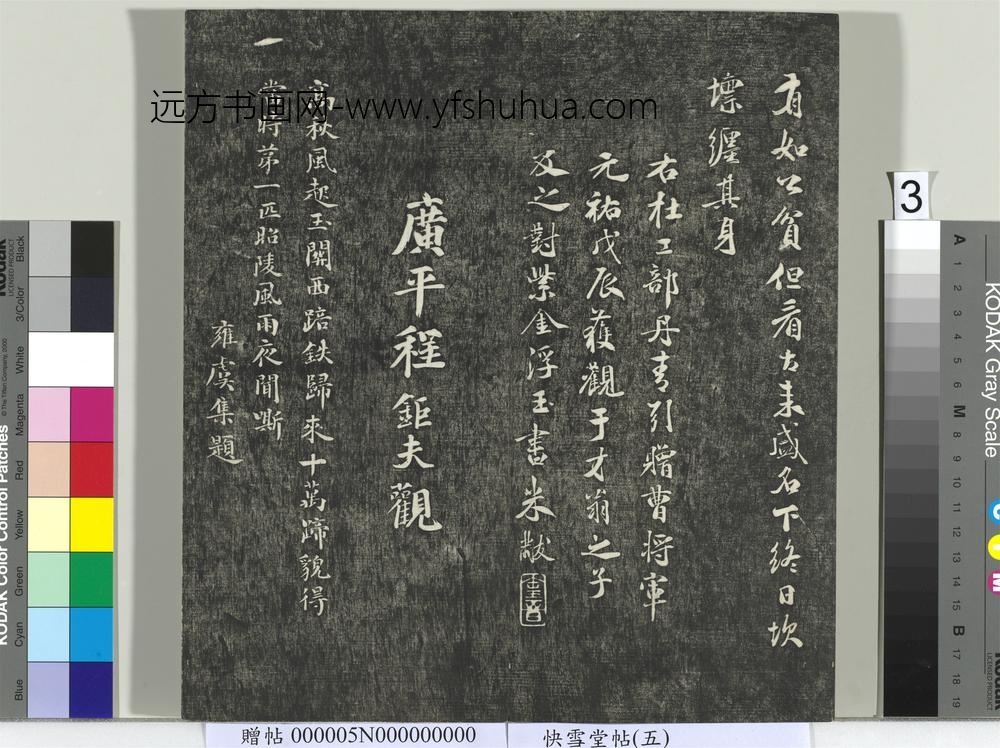 有如公貧但看古來盛名下終日坎
壈纏其身
右杜工部丹青引贈曹將軍
元祐戊辰獲觀于才翁之子
及之對紫金浮玉書米黻
廣平程鉅夫觀
高秋風起玉關西踣鉄歸來十萬蹄貌得
當時苐一匹昭陵風雨夜聞嘶
雍虞集題
一
远方书画网-www.yfshuhua.com
3
贈帖 000005N000000000
快雪堂帖(五)
KODAK Color Control Patches
Kodak
LICENSED PRODUCT
© The Tiffen Company, 2000
Blue
Cyan
Green
Yellow
Red
Magenta
White
3/Color
Black
KODAK Gray Scale
A 1 2 3 4 5 6 M 8 9 10 11 12 13 14 15 B 17 18 19
C
Y
M
Kodak
LICENSED PRODUCT